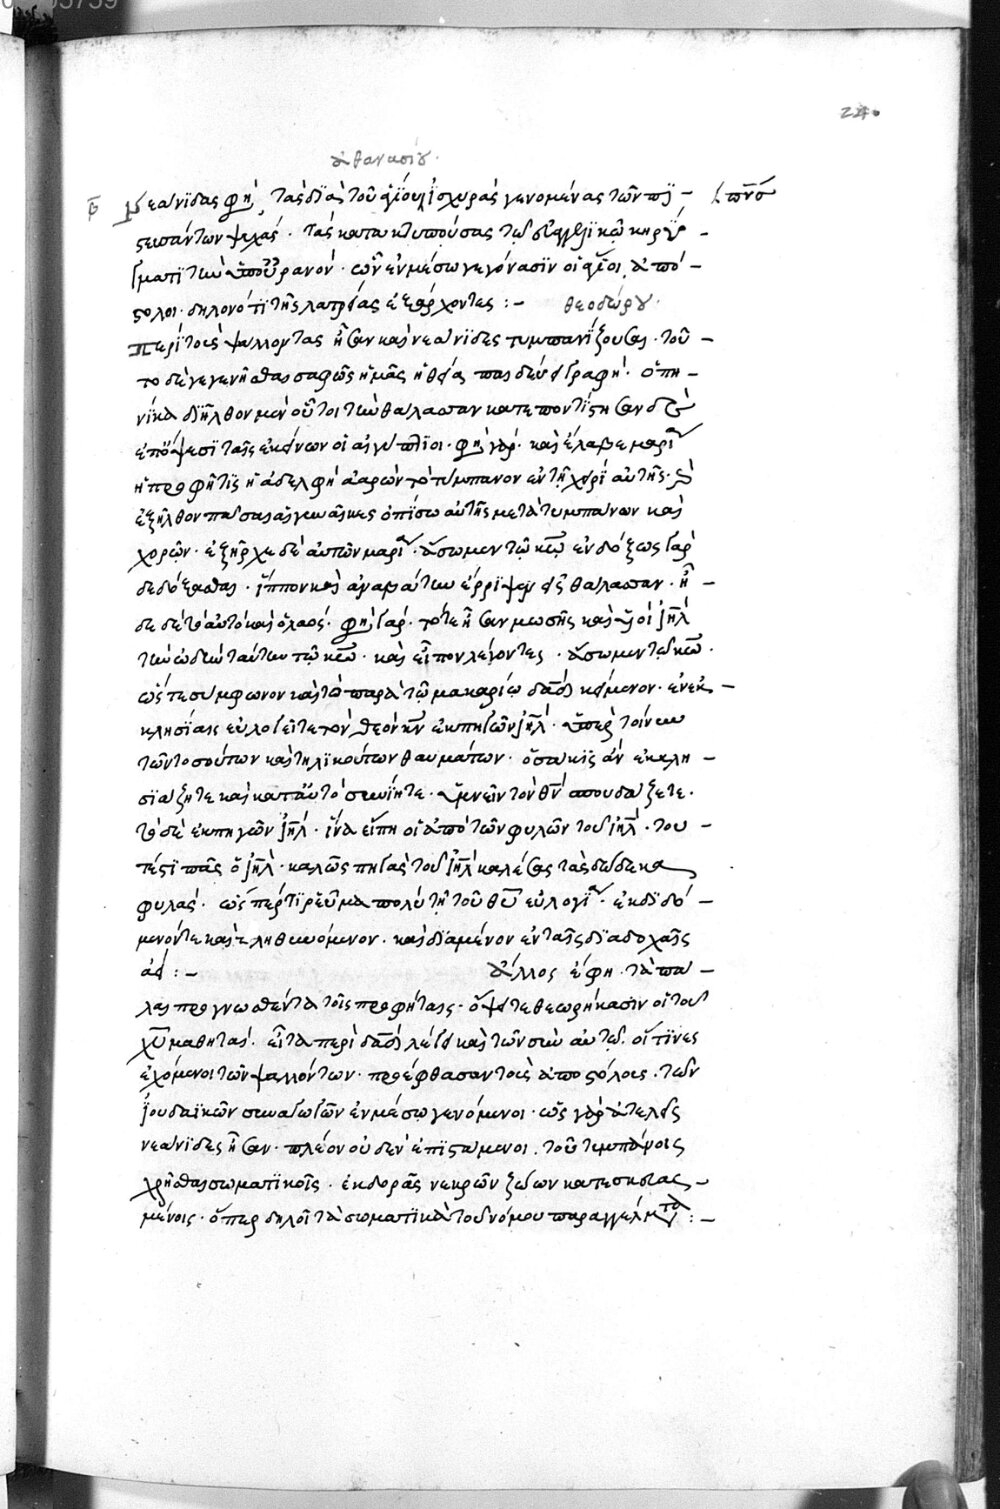 240
ἀθανασίου.
νεανίδας φη, τὰς διὰ τοῦ ἁγίου ἰσχυρὰς γενομένας τῶν πι - πνς
στευσάντων ψυχάς. τὰς κατακτυπούσας τῷ εὐαγγελικῷ κηρύ -
γματι τὴν ὑπ' οὐρανόν. ὧν ἐν μέσω γεγόνασιν οἱ ἅγιοι ἀπό -
στολοι. δηλονότι τῆς λατρείας ἐξάρχοντες : - θεοδώρου.
περὶ τοὺς ψάλλοντας ἦσαν καὶ νεανίδες τυμπανίζουσαι. τοῦ -
το δὲ γεγενῆσθαι σαφῶς ἡμᾶς ἡ θεία παιδεύει γραφή. ὁπη -
νίκα διῆλθον μὲν οὗτοι τὴν θάλασσαν κατεποντίσθησαν δὲ
ἐπόψεσι ταῖς ἐκείνων οἱ αἰγύπτιοι. φη γάρ. καὶ ἔλαβε μαρία
ἡ προφῆτις ἡ ἀδελφὴ ἀαρὼν τὸ τύμπανον ἐν τῇ χειρὶ αὐτῆς. καὶ
ἐξῆλθον πᾶσαι αἱ γυναῖκες ὀπίσω αὐτῆς μετὰ τυμπάνων καὶ
χορῶν. ἐξῆρχε δὲ αὐτῶν μαρία. ἄσωμεν τῷ κω ἐνδόξως γὰρ
δεδόξασται. ἵππον καὶ ἀναβάτην ἔρριψεν εἰς θάλασσαν. ἦ -
δε δὲ τὸ αὐτὸ καὶ ὁ λαός. φη γάρ. τότε ἦσεν μωσῆς καὶ υἱοὶ ιηλ
τὴν ὠδὴν ταύτην τῷ κω. καὶ εἶπον λέγοντες. ἄσωμεν τῷ κω.
ὥστε σύμφωνον καὶ τὸ παρὰ τῷ μακαρίω δαδ κείμενον. ἐν ἐκ -
κλησίαις εὐλογεῖτε τὸν θεὸν κν ἐκ πηγῶν ιηλ. ὑπὲρ τοίνυν
τῶν τοσούτων καὶ τηλικούτων θαυμάτων. ὁσάκις ἂν ἐκκλη -
σιάζητε καὶ κατ' αὐτὸ συνίητε. ὑμνεῖν τὸν θν σπουδάζετε.
τὸ δὲ ἐκ πηγῶν ιηλ. ἵνα εἴπη οἱ ἀπὸ τῶν φυλῶν τοῦ ιηλ. του -
τέστι πᾶς ὁ ιηλ. καλῶς πηγὰς τοῦ ιηλ καλέσας τὰς δώδεκα
φυλάς. ὥσπερ τι ῥεῦμα πολὺ τῇ τοῦ θυ εὐλογία. ἐκδιδό -
μενόν τε καὶ πληθυνόμενον. καὶ διαμένον ἐν ταῖς διαδοχαῖς
ἀεί : - ἄλλος ἔφη. τὰ πά -
λαι προγνωσθέντα τοῖς προφήταις. ὄψει τεθεωρήκασιν οἱ τοῦ
χυ μαθηταί. εἶτα περὶ δαδ λέγει καὶ τῶν σὺν αὐτῷ. οἵτινες
ἐχόμενοι τῶν ψαλλόντων. προέφθασαν τοὺς ἀποστόλους. τῶν
ἰουδαϊκῶν συναγωγῶν ἐν μέσω γενόμενοι. ὡς γὰρ ἀτελεῖς
νεανίδες ἦσαν. πλέον οὐδὲν ἐπιστάμενοι. τοῦ τυμπάνοις
χρῆσθαι σωματικοῖς. ἐκ δορᾶς νεκρῶν ζώων κατεσκευας -
μένοις. ὅπερ δηλοῖ τὰ σωματικὰ τοῦ νόμου παραγγέλματα : -